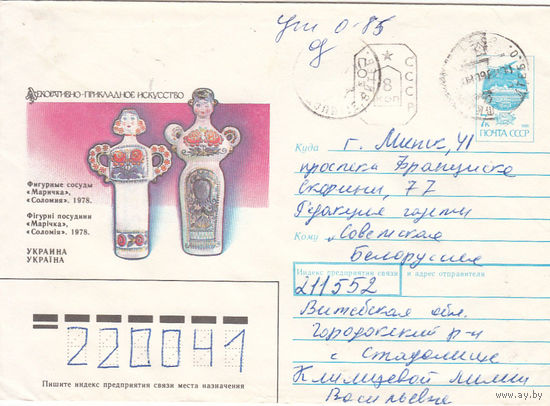 Уп 0-85
ДЕКОРАТИВНО-ПРИКЛАДНОЕ ИСКУССТВО
СССР
8
КОП
7к ПОЧТА СССР
Фигурные сосуды
«Маричка»,
«Соломия». 1978.
Фігурні посудини
«Марічка»,
«Соломія». 1978.
УКРАИНА
УКРАЇНА
Куда г. Минск, 41
проспект Франциска
Скорины, 77
Редакция газеты
Кому „Советская
Белоруссия
Индекс предприятия связи и адрес отправителя
211552
Витебская обл.
Городокский р-н
с
Климцевой Лилии
Васильевне
220041
Пишите индекс предприятия связи места назначения
www.ay.by